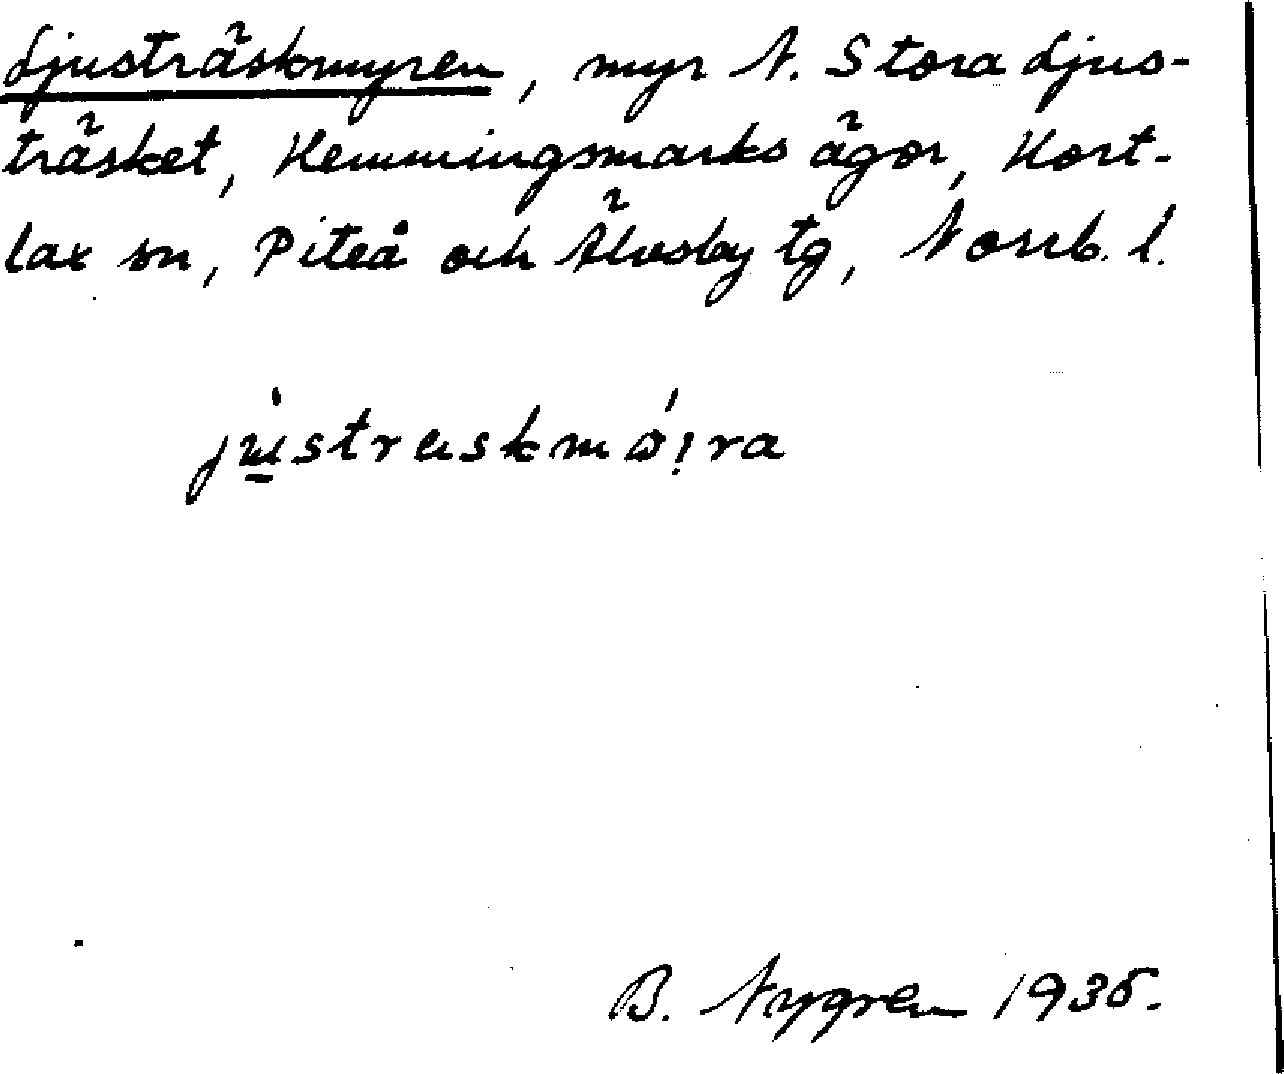 Ljusträskmyren, myr N. Stora Ljus-
träsket, Hemmingsmarks ägor, Hort-
lax sn, Piteå och Älvsby tg, Norrb. l.
B. Nygren 1935.